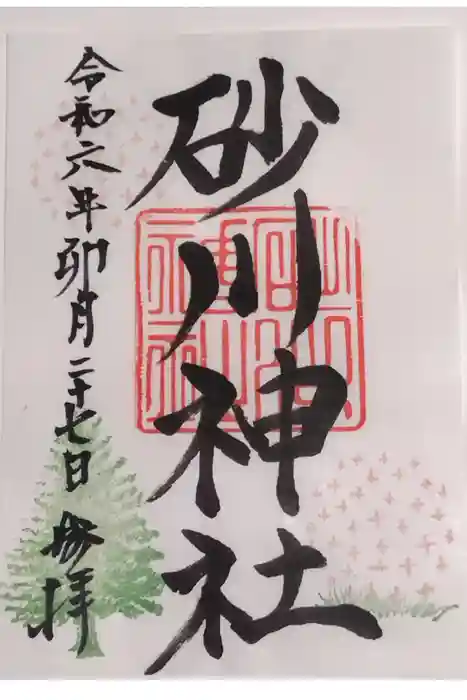 砂川神社
令和六年卯月二十七日
参拝